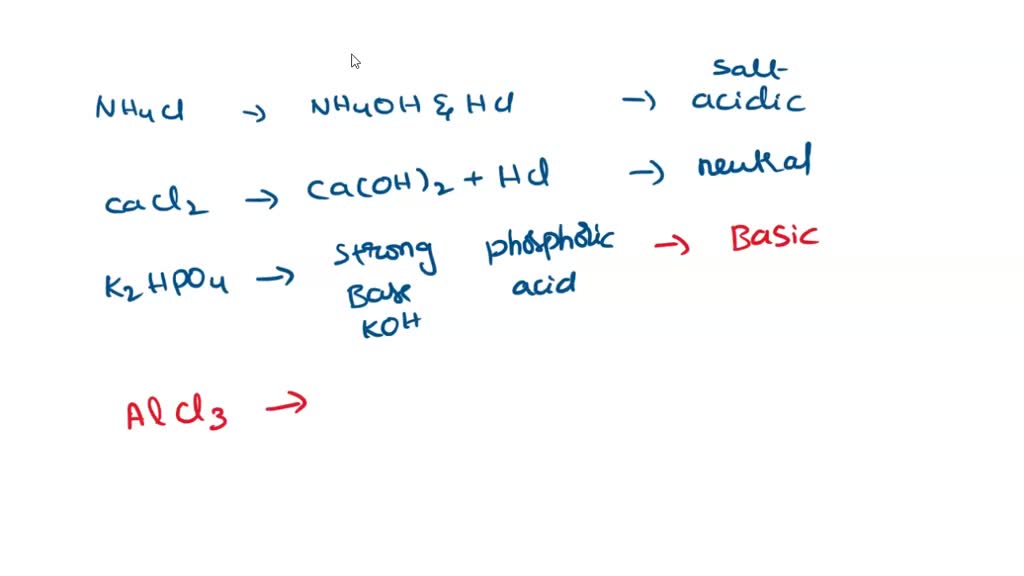 NH4Cl → NH4OH & HCl → Salt acidic
CaCl2 → Ca(OH)2 + HCl → neutral
K2HPO4 → Strong Base KOH phospholic acid → Basic
AlCl3 →